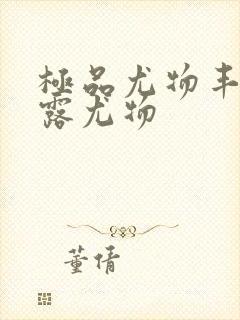 極品尤物丰
露尤物
董倩